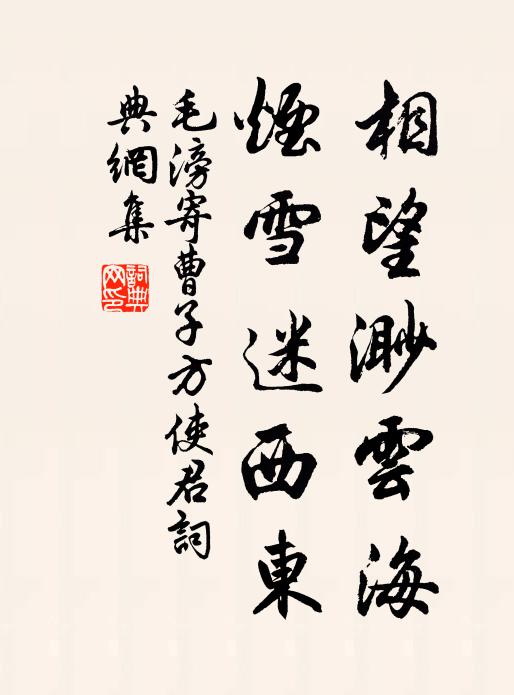 相望渺雲海
煙雪迷西東
毛滂寄曹子方使君詞
典網集
詞典網印